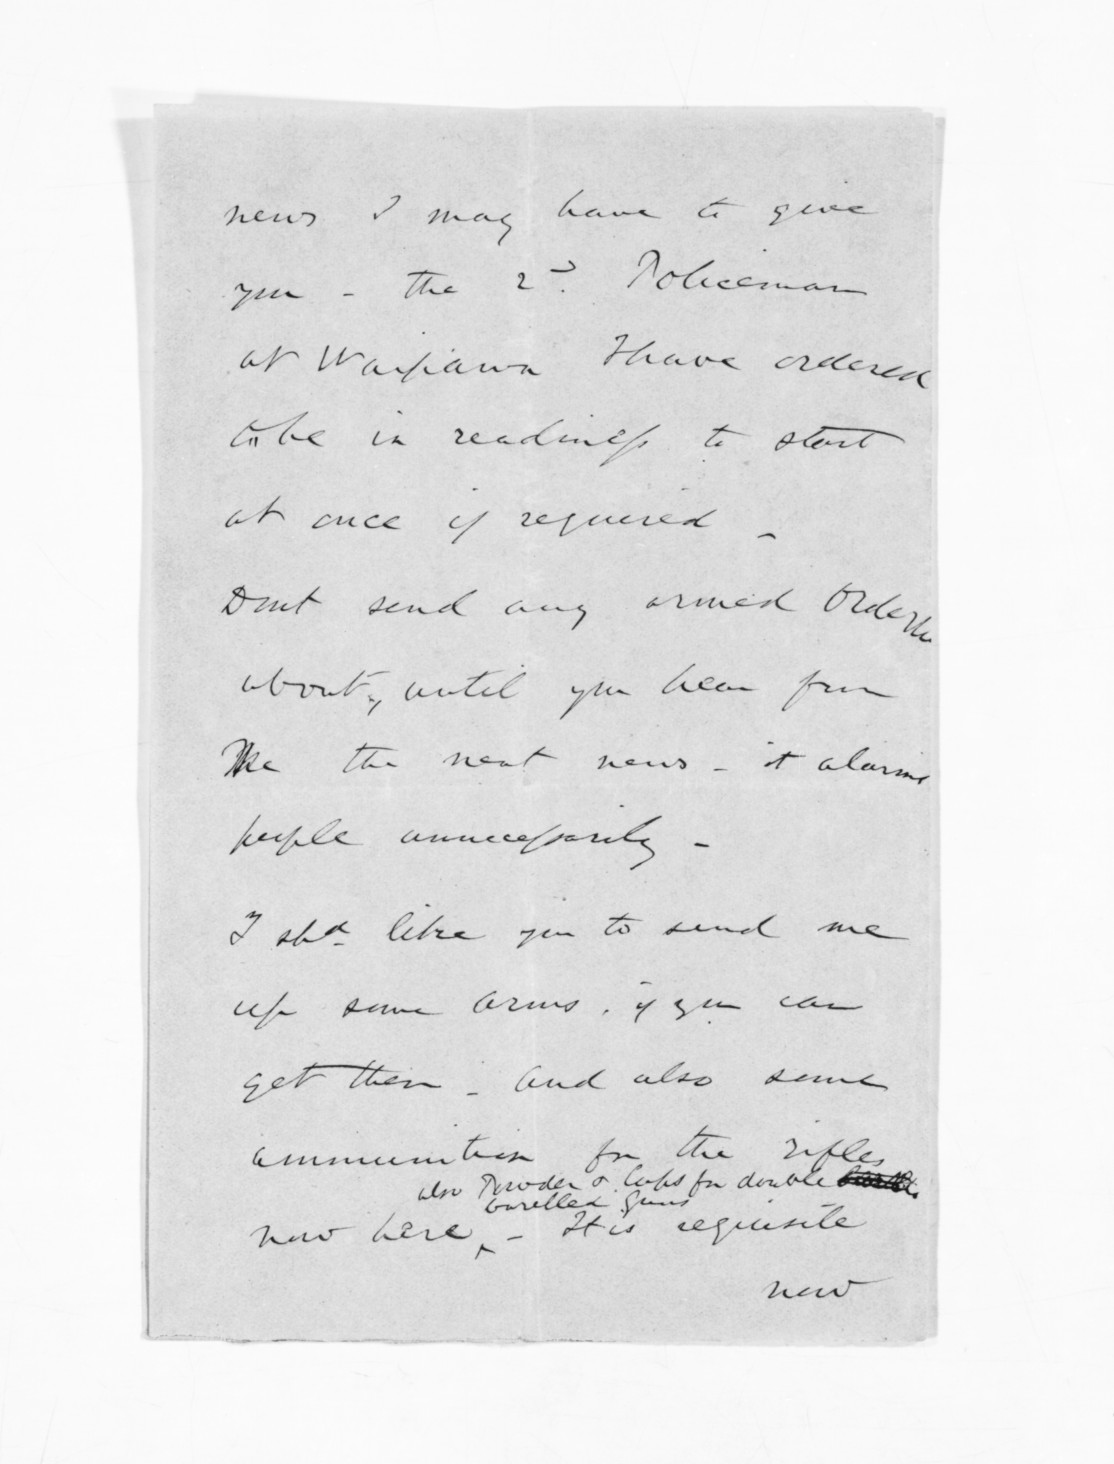 news I may have to give
you - the 2d. Policeman
at Waipawa I have ordered
to be in readiness to start
at once if required -
Dont send any armed Orderlies
about, until you hear from
Me the next news - it alarms
people unnecessarily -
I shd. like you to send me
up some arms. if you can
get them - and also some
ammunition for the rifles
also Powder & Caps for double
barelled guns
now here, - It is requisite
now